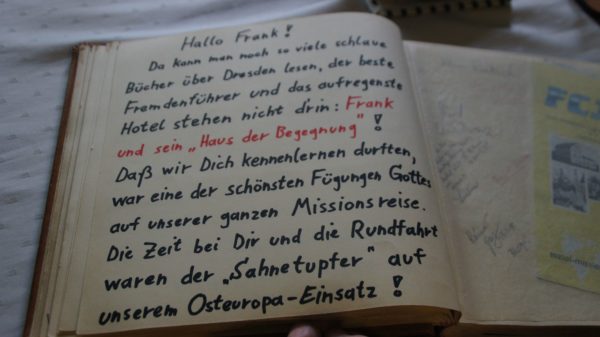 Hallo Frank!
Da kann man noch so viele schlaue
Bücher über Dresden lesen, der beste
Fremdenführer und das aufregenste
Hotel stehen nicht drin: Frank
und sein „Haus der Begegnung"!
Daß wir Dich kennenlernen durften,
war eine der schönsten Fügungen Gottes
auf unserer ganzen Missionsreise.
Die Zeit bei Dir und die Rundfahrt
waren der „Sahnetupfer" auf
unserem Osteuropa-Einsatz!